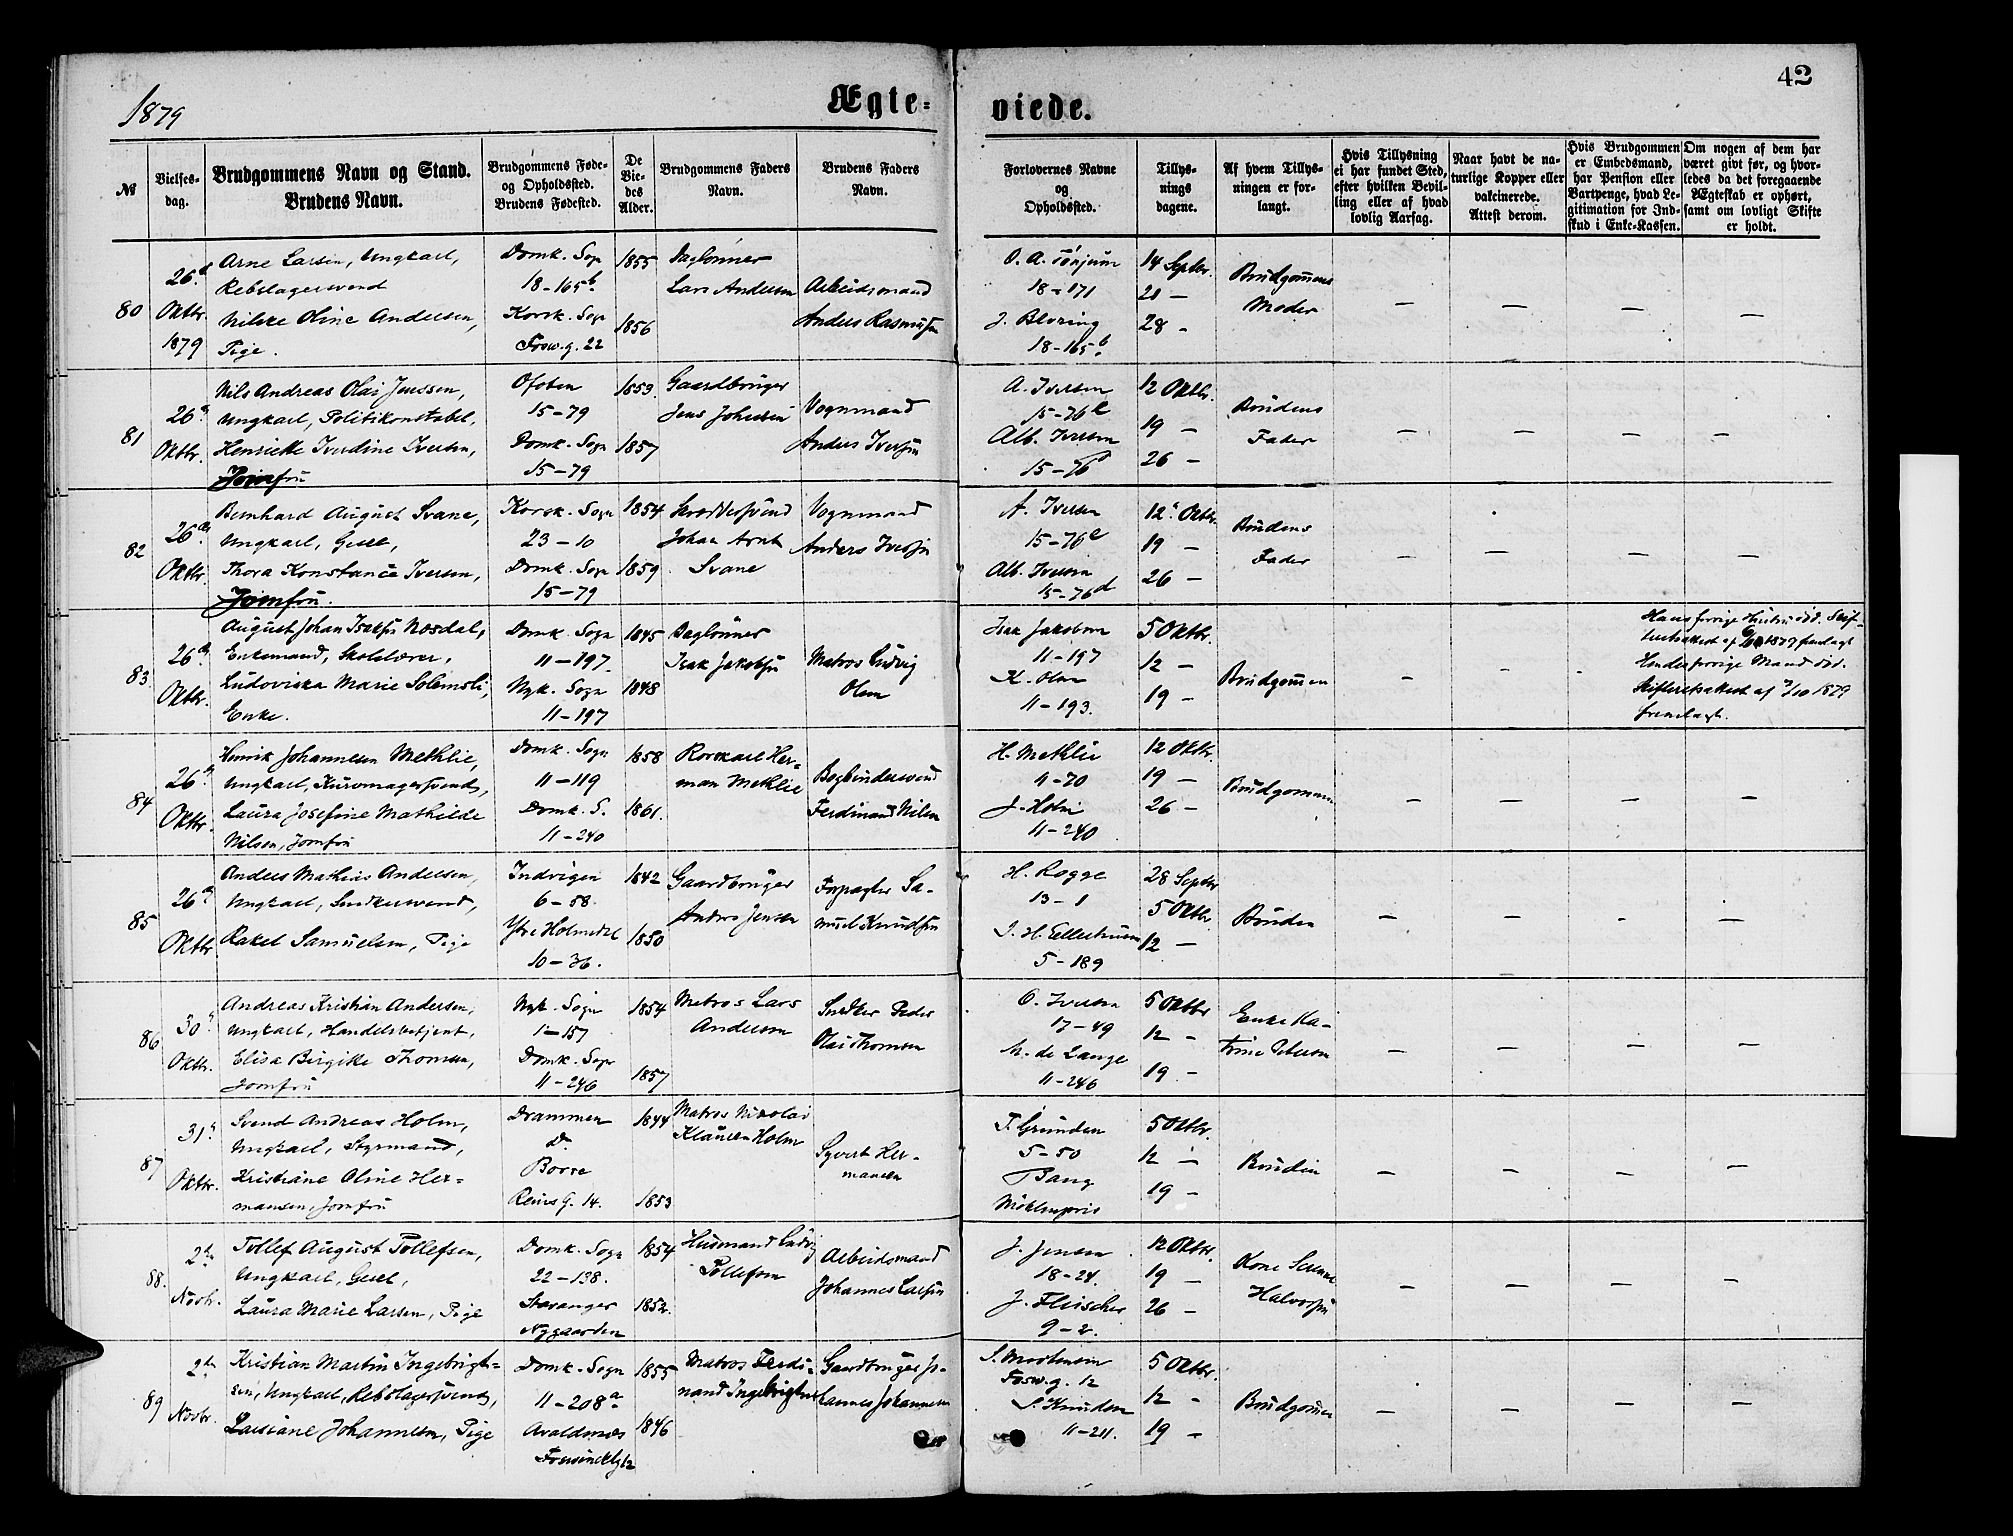 1879
Ægte-
viede.
42
№
Vielses-
dag.
Brudgommens Navn og Stand.
Brudens Navn.
Brudgommens Føde-
og Opholdssted.
Brudens Fødested.
De
Vie-
des
Alder.
Brudgommens Faders
Navn.
Brudens Faders
Navn.
Forlovernes Navne
og
Opholdssted.
Tillys-
nings
dagene.
Af hvem Tillys-
ningen er for-
langt.
Hvis Tillysning
ei har fundet Sted,
efter hvilken Bevil-
ling eller af hvad
lovlig Aarsag.
Naar havt de na-
turlige Kopper eller
vakcinerede.
Attest derom.
Hvis Brudgommen
er Embedsmand,
har Pension eller
Vartpenge, hvad Le-
gitimation for Ind-
skud i Enke-Kassen.
Om nogen af dem har
været givt før, og hvor-
ledes da det foregaaende
Ægteskab er ophørt,
samt om lovligt Skifte
er holdt.
80
26
Oktbr.
1879
Arne Larsen, Ungkarl,
Rebslagersvend
Oline Andersen,
Pige.
Domk. Sogn
18-165b
Korsk. Sogn
Forsv.g. 22
1855
1856
Daglönner
Lars Andersen
Arbeidsmand
Anders Rasmussen
O. A. Tönjum
18-171
J. Blering
18-165b
14 Septbr.
21 —
28 -
Brudgommens
Moder
— — — —
81
26
Oktbr.
Nils Andreas Olai Jenssen,
Ungkarl, Politikonstabel,
Henriette Iverdine Iversen,
Jomfru
Ofoten
15-79
Domk. Sogn
15-79
1853
1857
Gaardbruger
Jens Johnsen
Vognmand
Anders Iversen
A. Iversen
15-76e
Alb. Iversen
15-76d
12 Oktbr.
19 —
26 —
Brudens
Fader
— — — —
82
26
Oktbr
Bernhard August Svane,
Ungkarl, Gesel,
Thora Konstance Iversen,
Jomfru.
Korsk. Sogn
23-10
Domk. Sogn
15-79
1854
1859
Skreddersvend
Johan Arnt
Svane
Vognmand
Anders Iversen
A. Iversen
15-76e
Alb. Iversen
15-76d
12 Oktbr.
19 —
26 —
Brudens
Fader
— — — —
83
26
Oktbr.
August Johan Isaksen Nosdal,
Enkemand, Skolelærer,
Ludoviska Marie Solemsli,
Enke.
Domk. Sogn
11-197
Nyk. Sogn
11-197
1845
1848
Daglönner
Isak Jakobsen
Matros Ludvig
Olsen
Isak Jakobsen
11-197
K. Olsen
11-193.
5 Oktbr.
12 —
19 —
Brudgommen
— — -
Hans forrige Hustru död. Skif-
teretsattest af 1879 fremlagt
Hendes forrige Mand död.
Skifteretsattest af /10 1879
fremlagt.
84
26
Oktbr.
Henrik Johannesen Methlie,
Ungkarl, Kurvmagersvend,
Laura Josefine Mathilde
Nilsen, Jomfru
Domk. Sogn
11-119
Domk. S.
11-240
1858
1861.
Rorskarl Her-
man Methlie
Bogbindersvend
Ferdinand Nilsen
H. Methlie
11-70
J. Holm
11-240
12 Oktbr.
19 —
26 —
Brudgommen
— — — —
85
26
Oktbr
Anders Mathias Andersen,
Ungkarl, Snedkersvend,
Rakel Samuelsen, Pige
Indvigen
6-58.
Ytre Holmedal
10-36.
1842
1850
Gaardbruger
Anders Jensen
Forpagter Sa-
muel Knudsen
H. Rogge
13-1
J. H. Ellertsen
5-189
28 Septbr
5 Oktbr
12 —
Bruden
— — - —
86
30
Oktbr.
Andreas Kristian Andersen,
Ungkarl, Handelsbetjent,
Elisa Birgitte Thomsen,
Jomfru
Nyk. Sogn
1-157
Domk. Sogn
11-246
1854
1857
Matros Lars
Andersen
Snedker Peder
Olai Thomsen
O. Iversen
17-49
M. de Lange
11-246
5 Oktbr
12 -
19 -
Enke Ka-
trine Petersen
— — — —
87
31
Oktbr.
Svend Andreas Holm,
Ungkarl, Styrmand,
Kristiane Oline Her-
mansen, Jomfru
Drammen
D.
Borre
Reins G. 14.
1844
1853
Matros Nikolai
Klausen Holm
Syvert Her-
mansen
T. Grunden
5-50
Bang
Möhlenpris
5 Oktbr.
12 —
19 -
Bruden
— — — —
88.
2
Novbr.
Tollef August Tollefsen,
Ungkarl, Gesel,
Laura Marie Larsen, Pige
Domk. Sogn
22-138.
Stavanger
Nygaarden
1854
1852.
Husmand Ludvig
Tollefsen
Arbeidsmand
Johannes Larsen
J. Jensen
18-24.
J. Fleischer
9-2.
12 Oktbr.
19 —
26 —
Kone Serine
Halvorsen
— — — —
89
2
Novbr.
Kristian Martin Ingebrigt-
sen, Ungkarl, Rebslagersvend,
Larsiane Johannesen, Pige
Domk. Sogn
11-208a
Avaldsnes
1855
1846
Matros Ferdi-
nand Ingebrigtsen
Gaardbruger Jo-
hannes Johannesen
S. Mortensen
Forsv.g. 12
S. Knudsen
11-211.
5 Oktbr.
12 -
19 -
Brudgommen
— — — —